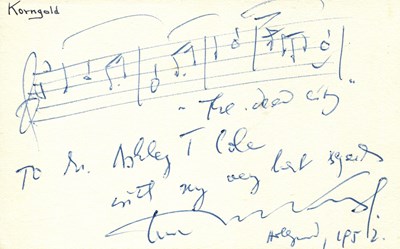 Korngold
"The dead city"
To Mr. Ashley T Cole
with my very best regards
1952.